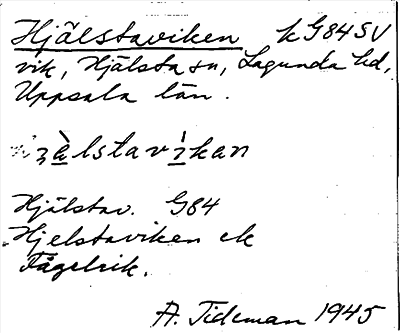 Hjälstaviken k G84SV
vik, Hjälsta sn, Lagunda hd,
Uppsala län.
jàlstavìkan
Hjälstav. G84
Hjelstaviken ek
Fågelrik.
A. Tideman 1945